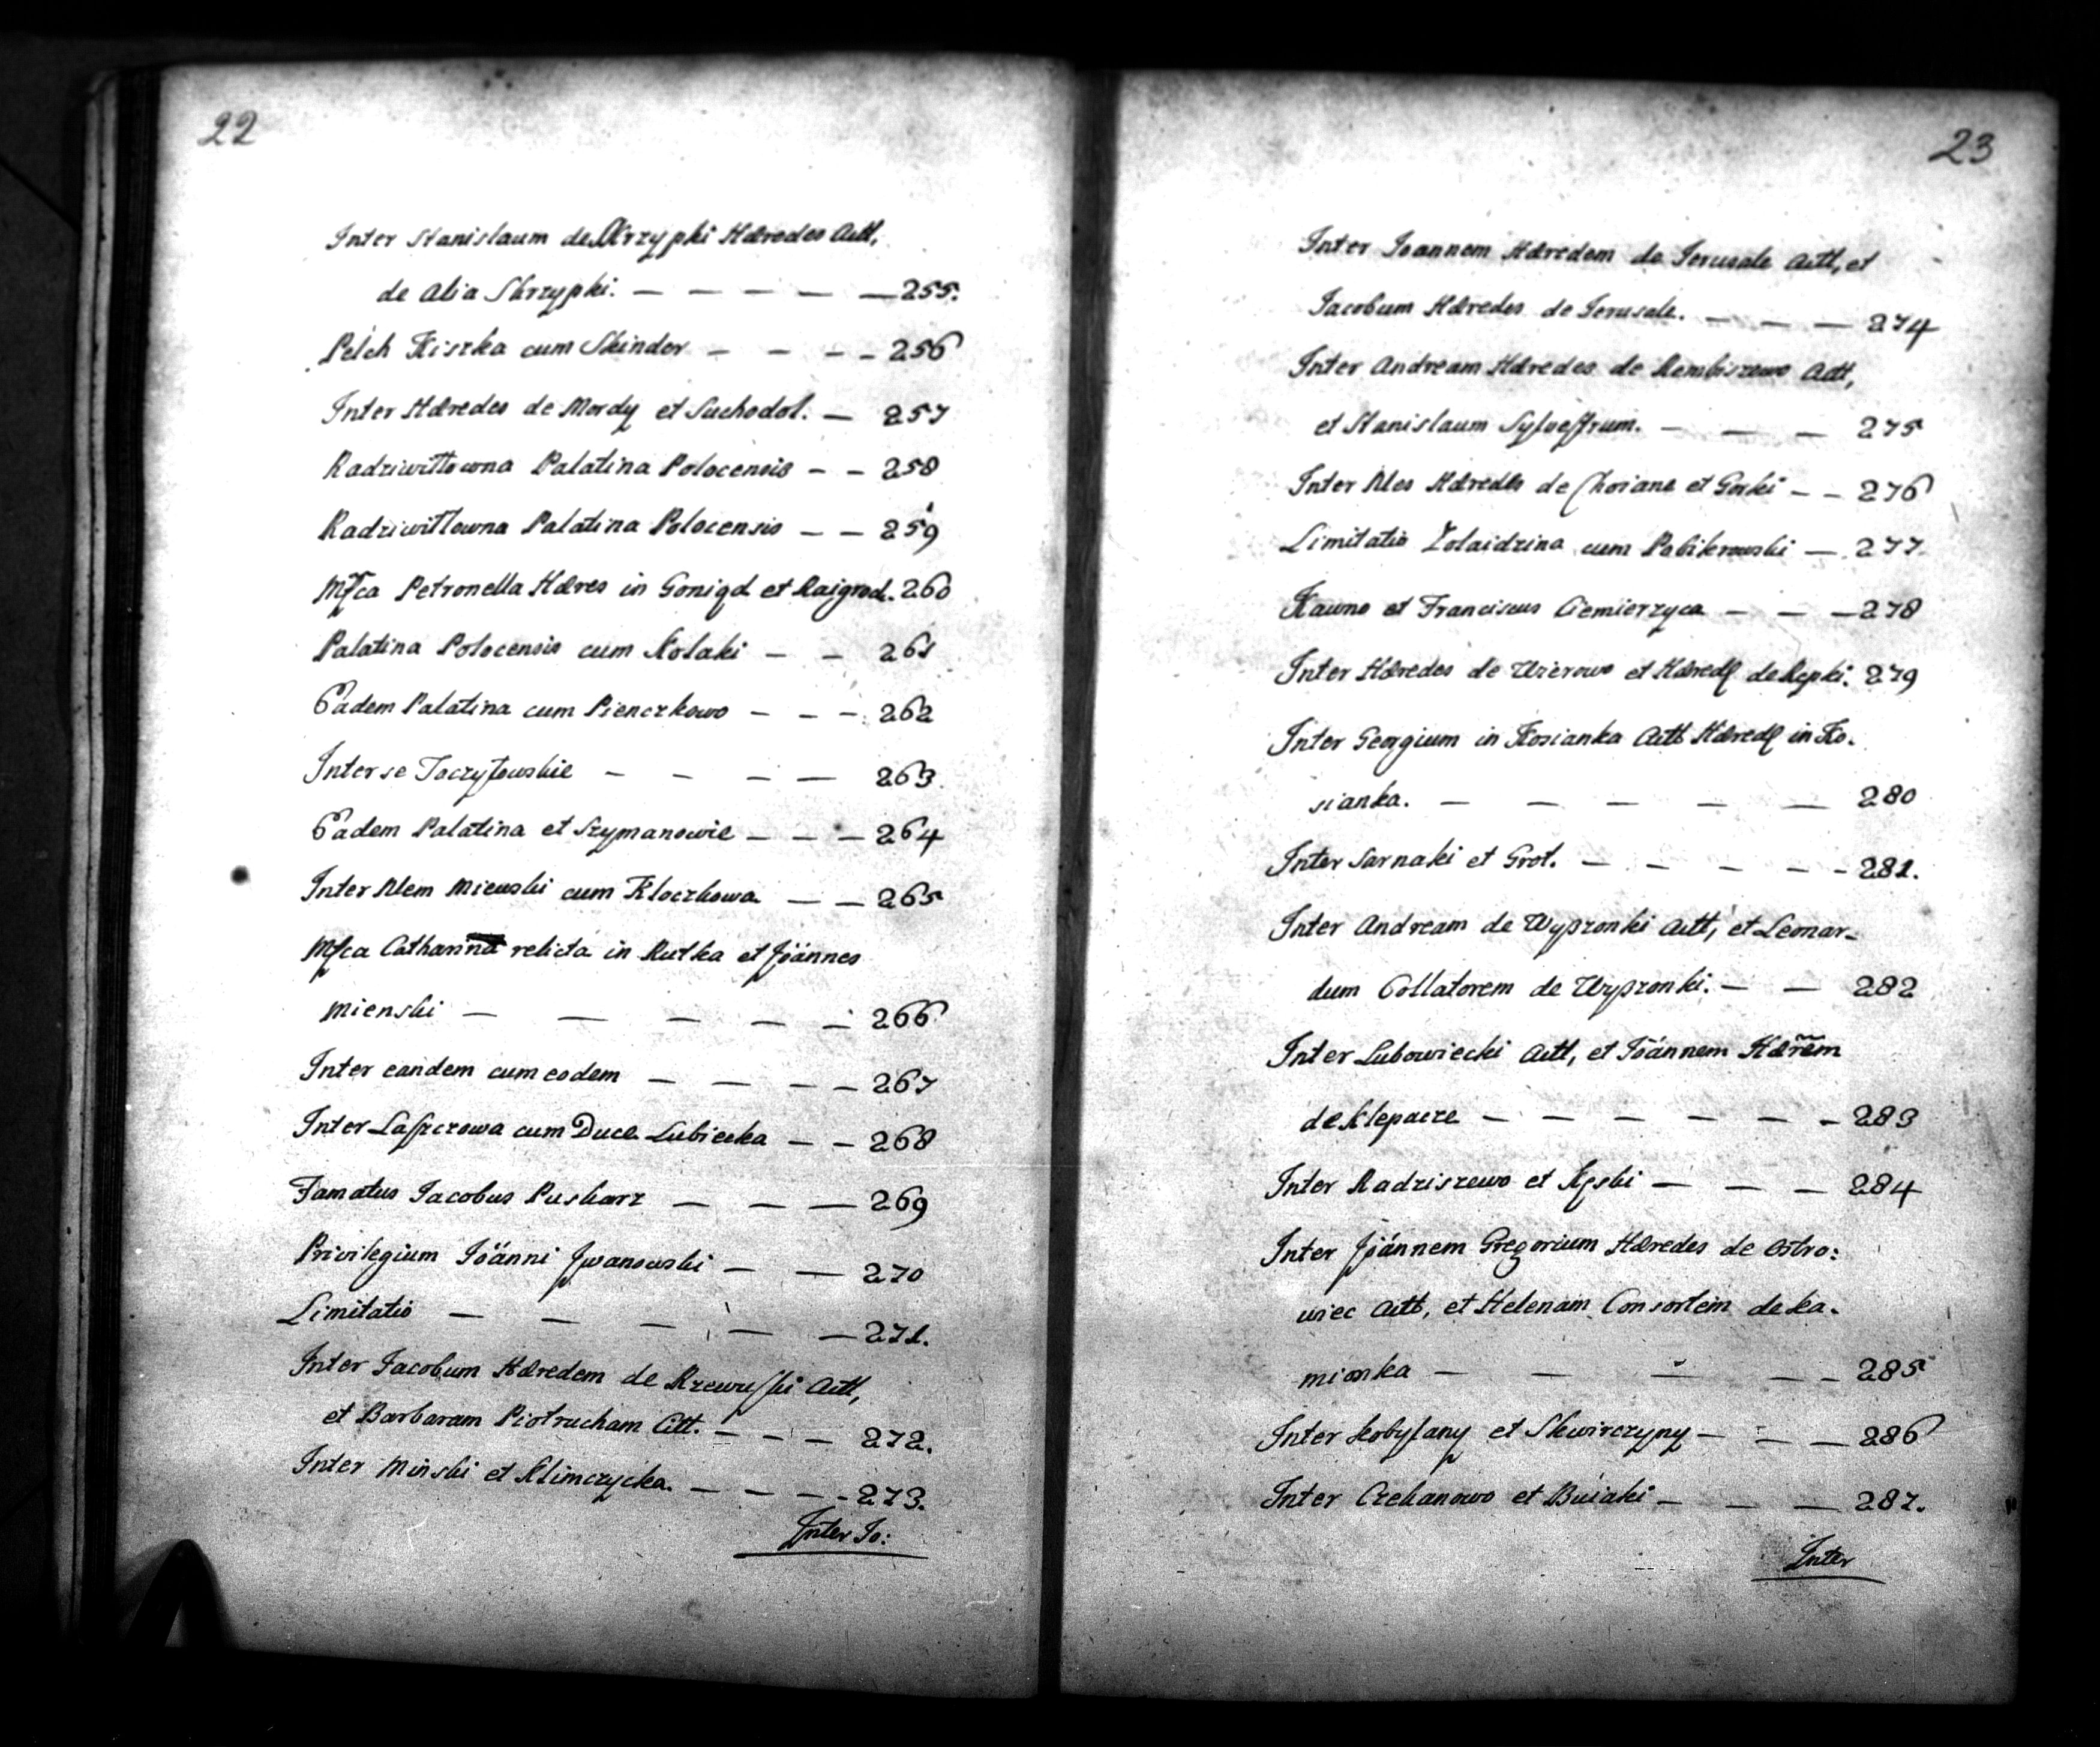 22
Inter Stanislaum de Skrzypki Hæredes Actt,
de Alia Skrzypki. — — — — — 255.
Pelch Kiszka cum Skinder — — — — 256
Inter Hæredes de Mordy et Suchodol. — 257
Radziwiłłowna Palatina Polocensis — — 258
Radziwiłłowna Palatina Polocensis — — 259
Mfca Petronella Hæres in Goniądz et Raigrod. 260
Palatina Polocensis cum Kolaki — — 261
Eadem Palatina cum Pienczkowo — — — 262
Inter se Toczyłowskie — — — — 263
Eadem Palatina et Szymanowie — — — 264
Inter Nlem Mienski cum Kloczkowa — — 265
Mfca Catharina relicta in Rutka et Joannes
Mienski — — — — — 266
Inter eandem cum eodem — — — — 267
Inter Laszczowa cum Duce Lubiecka — — 268
Famatus Iacobus Puskarz — — — 269
Privilegium Ioanni Jwanowski — — 270
Limitatio — — — — — 271.
Inter Jacobum Hæredem de Rzewuski Actt,
et Barbaram Piotrucham Citt. — — — 272.
Inter Minski et Klimczycka. — — — - 273.
Inter Io:
23
Inter Ioannem Hæredem de Ierusale Actt, et
Iacobum Hæredes de Ierusale. — — — 274
Inter Andream Hæredes de Rembiszewo Actt,
et Stanislaum Sylvestrum. — — — 275
Inter Nles Hæredes de Choiane et Gorki — — 276
Limitatio Zolaidzina cum Pobikrowski — 277.
Kawno et Franciscus Ciemierzyca — — — 278
Inter Hæredes de Wierowo et Hæred de Repki. 279
Inter Georgium in Kosianka Actt Hæred in Ko-
sianka. — — — — — 280
Inter Sarnaki et Grot. — — — — - 281.
Inter Andream de Wypzonki Actt, et Leonar-
dum Collatorem de Wypzonki. — — 282
Inter Lubowiecki Actt, et Ioannem Hærem
de Klepacze — — — — — — - 283
Inter Radziszewo et Kęski — — — 284
Inter Joannem Gregorium Hæredes de Ostro:
wiec Actt, et Helenam Consortem de Ka-
mionka — — — — — 285
Inter Kobylany et Skwirczyny — — — 286
Inter Czekanowo et Buiaki — — — 287.
Inter